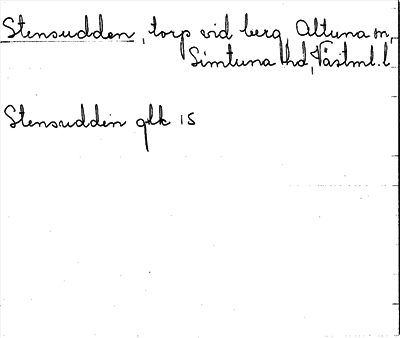 Stensudden, torp vid berg, Altuna sn,
Simtuna hd, Västml. l.
Stensudden glk 15